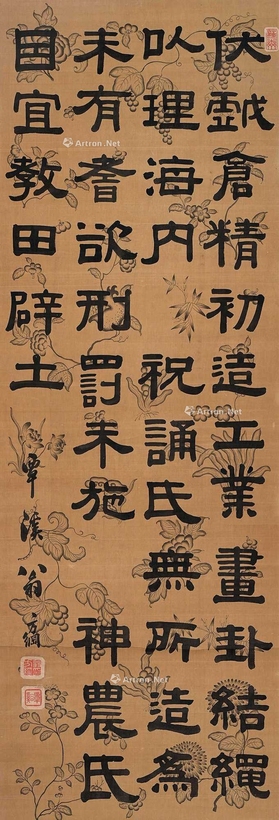 伏戲倉精初造工業畫卦結繩
以理海內 祝誦氏無所造為
未有耆欲刑罰未施 神農氏
因宜教田辟土
覃溪翁方綱
Artron.Net
Artron.Net
Artron.Net
Artron.Net